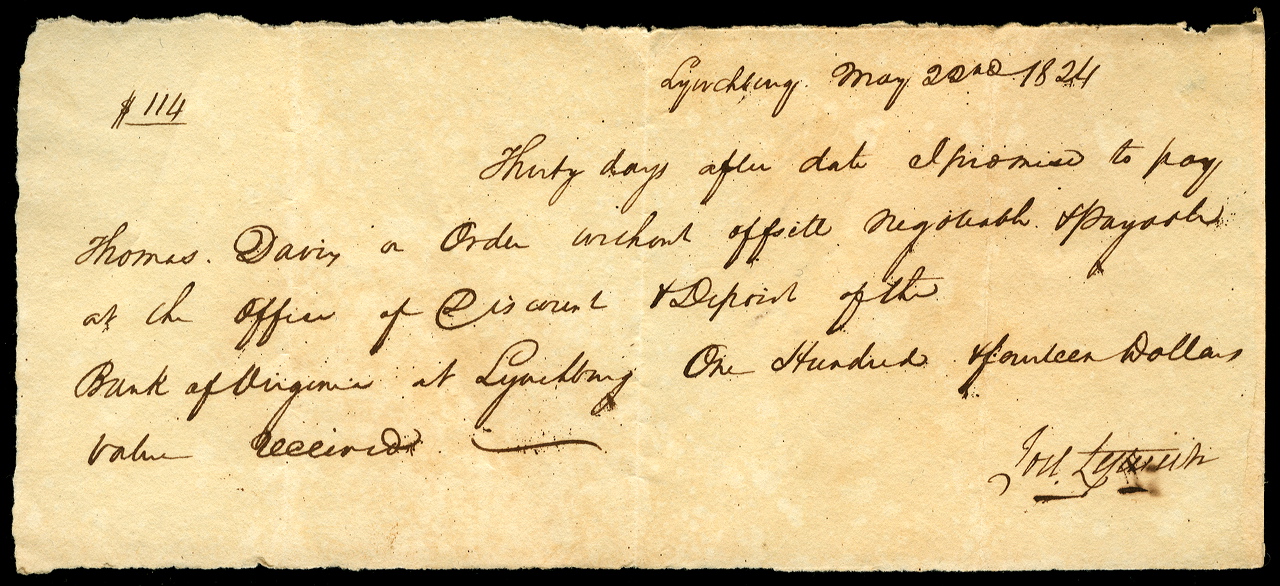 Lynchburg. May 22nd 1824
$ 114
Thirty days after date I promise to pay
Thomas. Davis or Order without offsett Negotiable & Payable
at the Office of Discount & Deposit of the
Bank of Virginia at Lynchburg One Hundred & fourteen Dollars
value received
Lynch